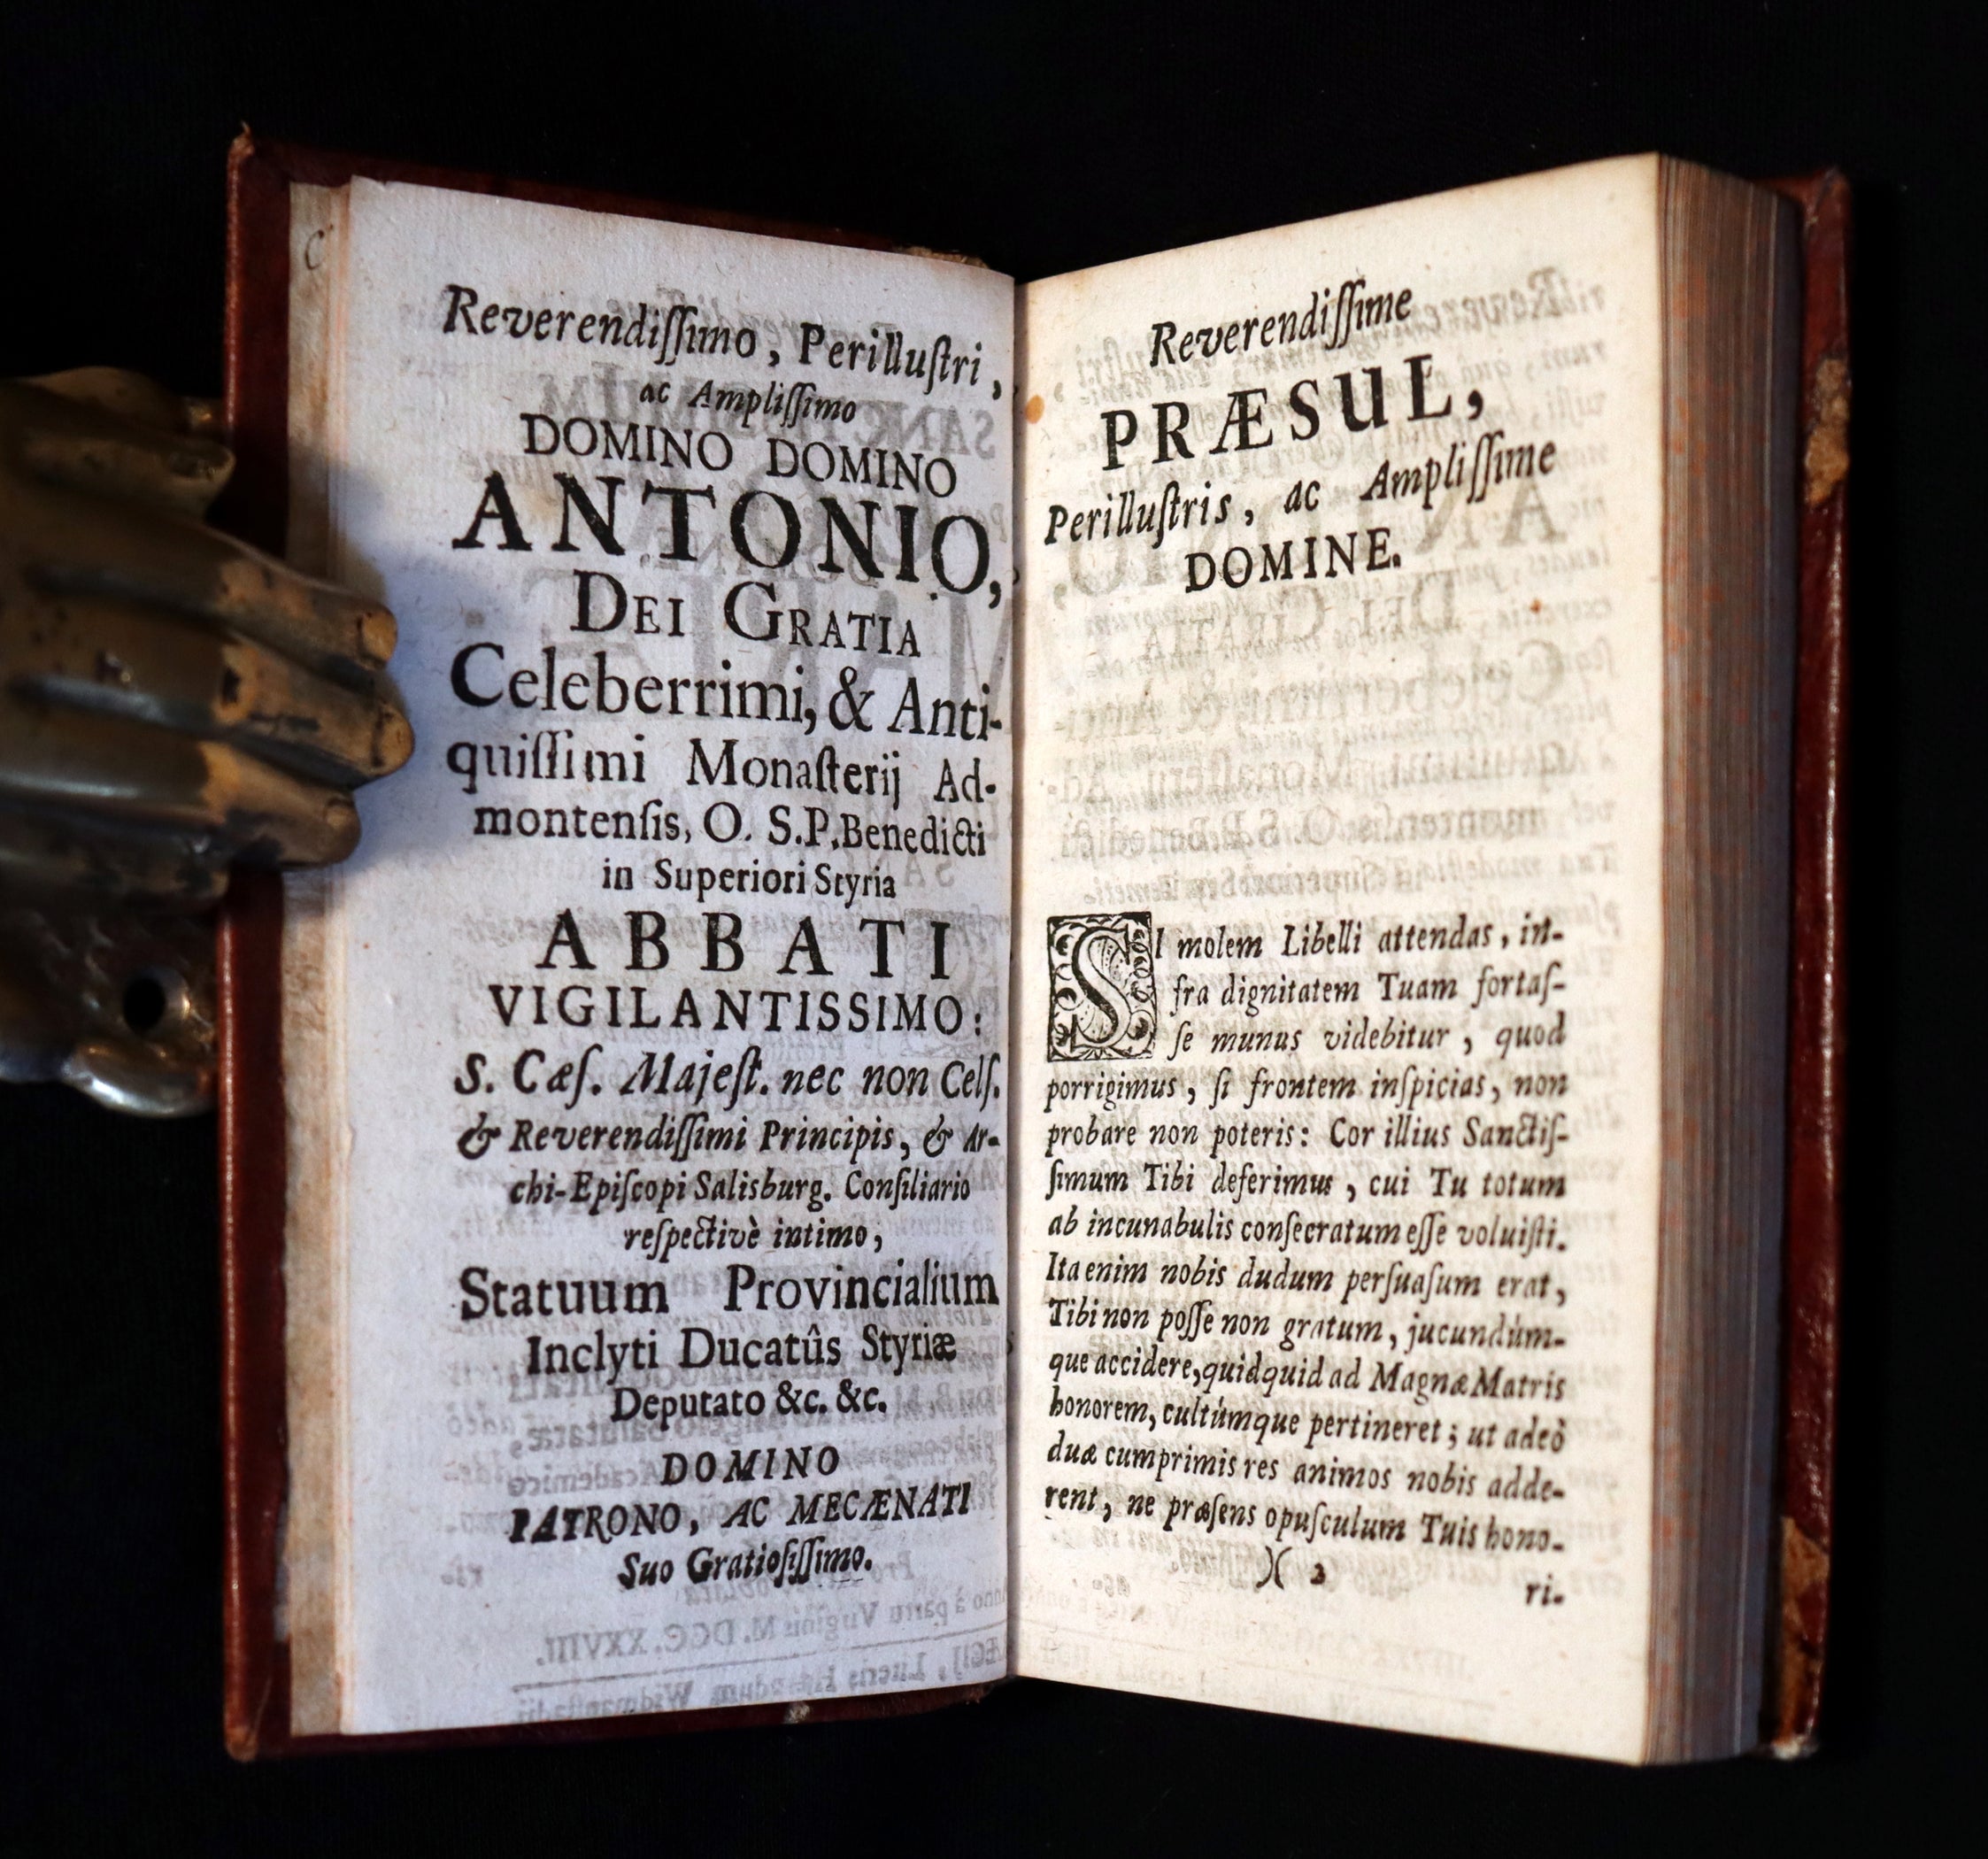 Reverendiſſimo, Perilluſtri,
ac Ampliſſimo
DOMINO DOMINO
ANTONIO,
DEI GRATIA
Celeberrimi, & Anti-
quiſſimi Monaſterij Ad-
montenſis, O. S. P. Benedicti
in Superiori Styria
ABBATI
VIGILANTISSIMO:
S. Cæſ. Majeſt. nec non Celſ.
& Reverendiſſimi Principis, & Ar-
chi-Epiſcopi Salisburg. Conſiliario
reſpectivè intimo,
Statuum Provincialium
Inclyti Ducatûs Styriæ
Deputato &c. &c.
DOMINO
PATRONO, AC MECÆNATI
Suo Gratioſiſſimo.
Reverendiſſime
PRÆSUL,
Perilluſtris, ac Ampliſſime
DOMINE.
SI molem Libelli attendas, in-
fra dignitatem Tuam fortaſ-
ſe munus videbitur, quod
porrigimus, ſi frontem inſpicias, non
probare non poteris: Cor illius Sanctiſ-
ſimum Tibi deferimus, cui Tu totum
ab incunabulis conſecratum eſſe voluiſti.
Ita enim nobis dudum perſuaſum erat,
Tibi non poſſe non gratum, jucundúm-
que accidere, quidquid ad Magnæ Matris
honorem, cultúmque pertineret; ut adeò
duæ cumprimis res animos nobis adde-
rent, ne præſens opuſculum Tuis hono-
)( 2
ri-